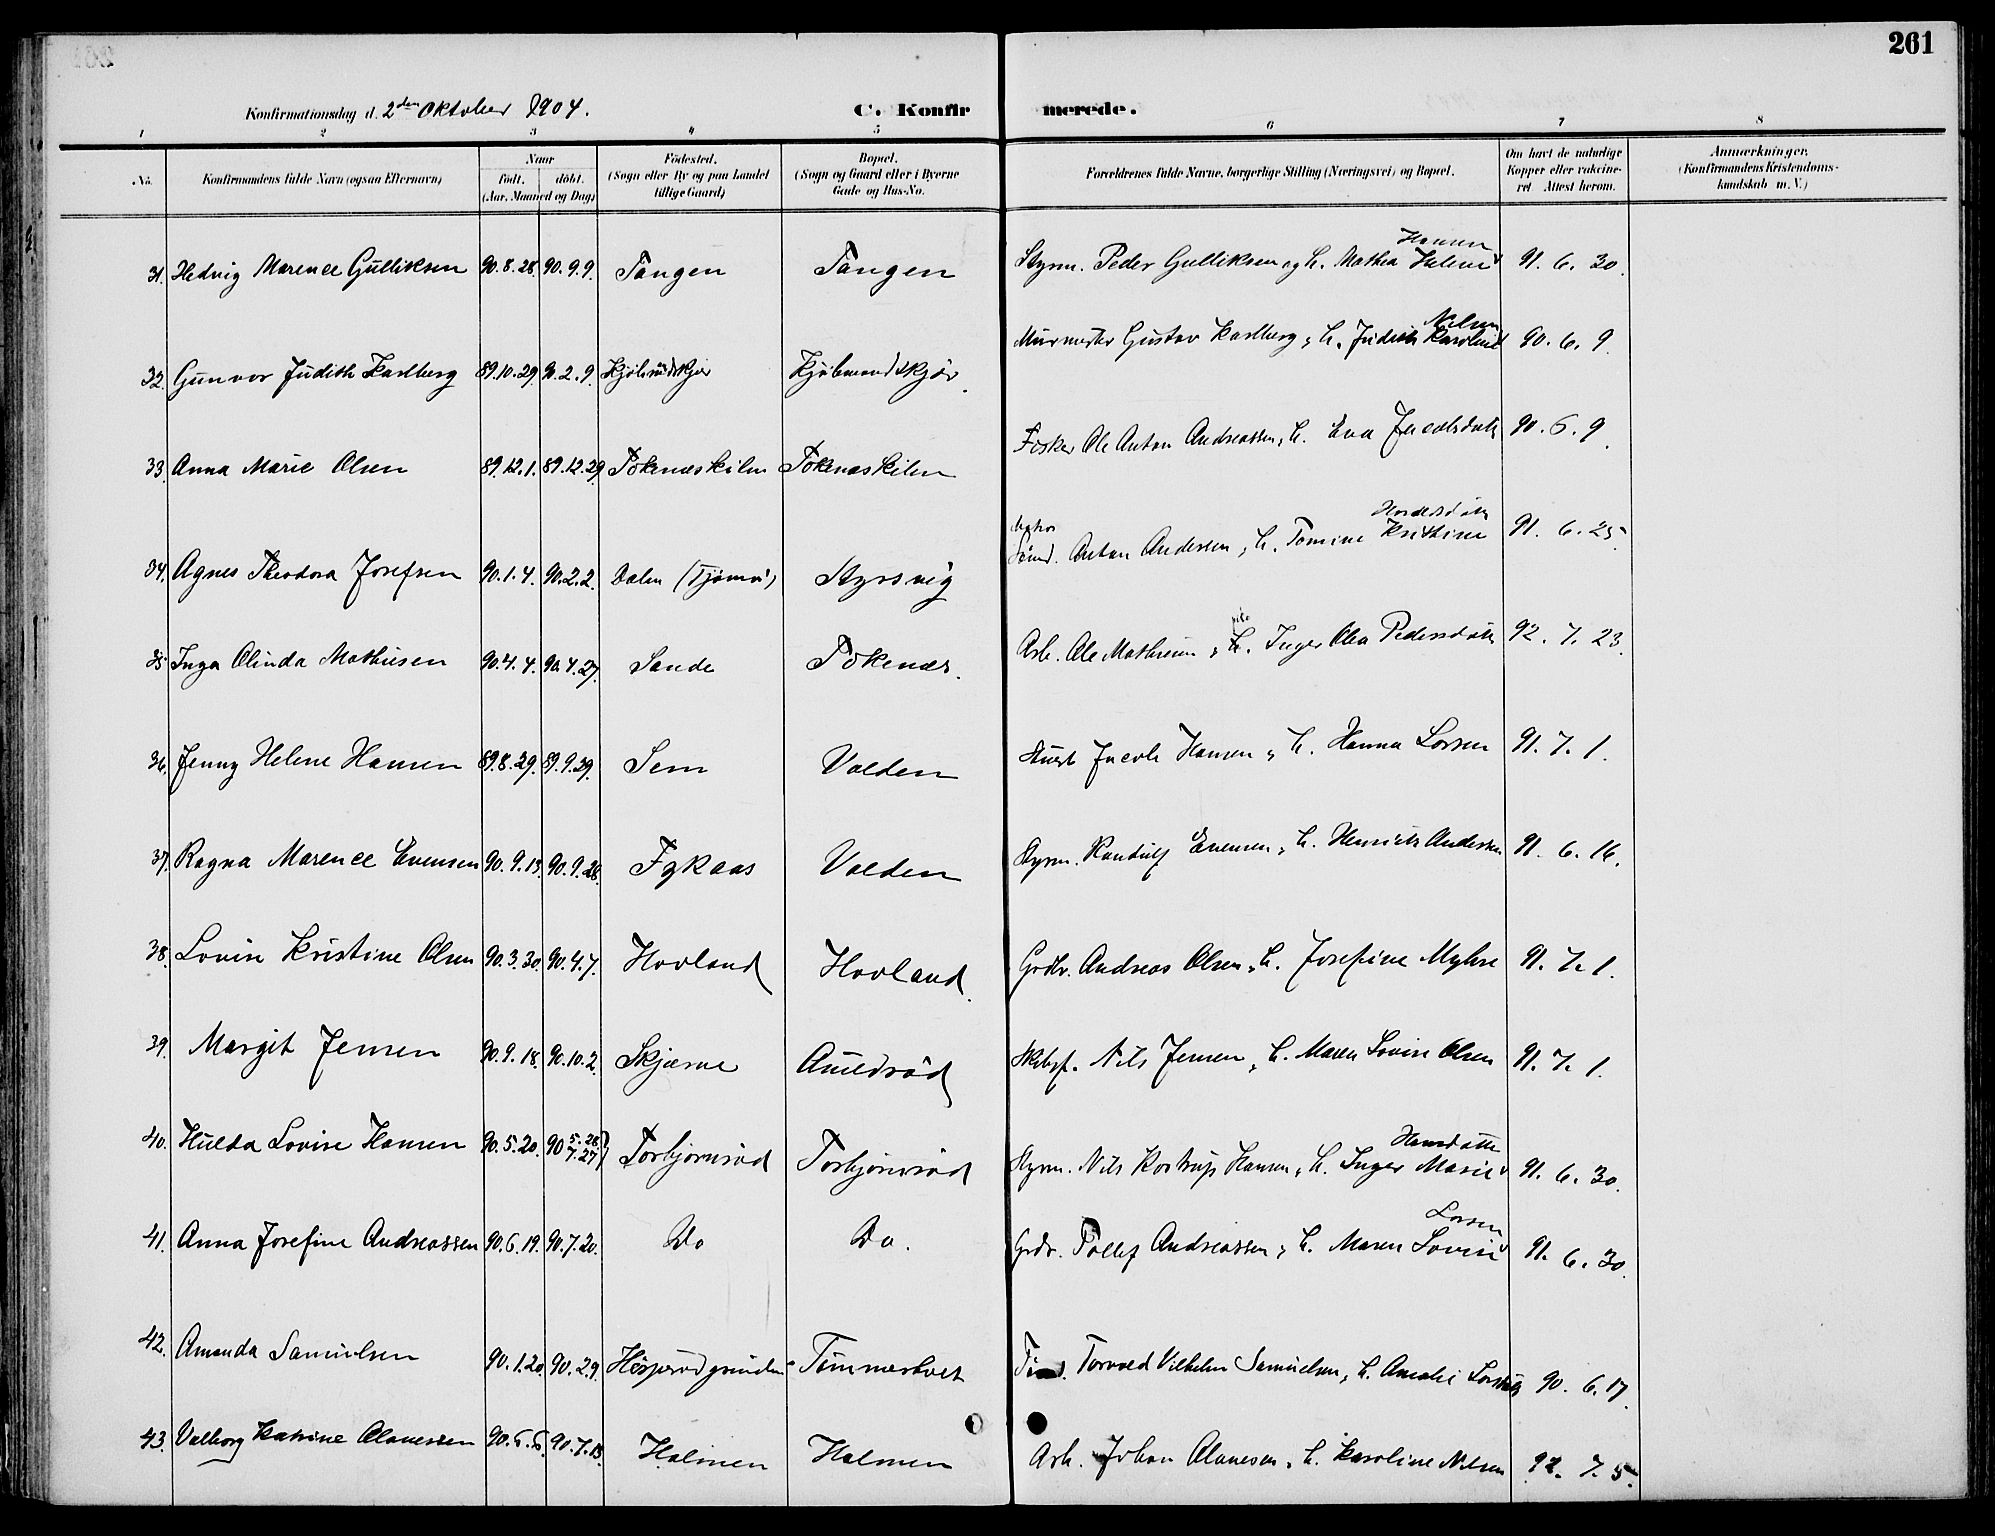 261
Konfirmationsdag d. 2den Oktober 1904. C. Konfirmerede.
1 2 3 4 5 6 7 8
No. Konfirmandens fulde Navn (ogsaa Efternavn) Naar Født. døbt. (Aar, Maaned og Dag) Fødested. (Sogn eller By og paa Landet tillige Gaard) Bopæl. (Sogn og Gaard eller i Byerne Gade og Hus-No. Forældrenes fulde Navne, borgerlige Stilling (Næringsvei) og Bopæl. Om havt de naturlige Kopper eller vakcineret Attest herom. Anmærkninger. (Konfirmandens Kristendomskundskab m. V.)
31. Hedvig Marence Gulliksen 90.8.28. 90.9.9. Tangen Tangen Styrm. Peder Gulliksen og H. Mathea Helene Hansen 91. 6. 30.
32. Gunvor Judith Karlberg 89.10.29. 90.2.9. Murmester Gustav Karlberg, H. Judith Karoline Nilsen 90. 6. 9.
33. Anna Marie Olsen 89.12.1. 89.12.29. Tokenæskilen Tokenæskilen Fisker Ole Anton Andreassen, H. Eva Jacobsdatt 90. 6. 9.
34. Agnes Theodora Josefsen 90.1.4. 90.2.2. Dalen (Tjømø) Styrsvig Anton Andersen, H. Tomine Kristine 91. 6. 25.
35. Inga Olinda Mathisen 90.4.4. 90.4.27. Sande Tokenæs. Arb. Ole Mathisen, H. Inger Olea Pedersdatt 92. 7. 23.
36. Jenny Helene Hansen 89.8.29. 89.9.29. Sem Valden Jacob Hansen, H. Hanna Larsen 91. 7. 1.
37. Ragna Marence Evensen 90.9.13. 90.9.28. Valden Styrm. Randulf Evensen, H. Henriette Andersen 91. 6. 16.
38. Lovise Kristine Olsen 90.3.30. 90.4.7. Hovland Hovland. Grdbr. Andreas Olsen, H. Josefine Myhre 91. 7. 1.
39. Margit Jensen 90.9.18. 90.10.2. Skjærve Auledrød Skibsf. Nils Jensen, H. Maren Lovise Olsen 91. 7. 1.
40. Hulda Lovise Hansen 90.5.20. 90 5.28. 7.27 Torbjørnrød Torbjørnrød Styrm. Nils Kostrup Hansen, H. Inger Marie Hansdatter 91. 6. 30.
41. Anna Josefine Andreassen 90.6.19. 90.7.20. Do Do. Grdbr. Tollef Andreassen, H. Maren Lovise Larsen 91. 6. 30.
42. Amanda Samuelsen 90.1.20. 90.2.9. Tømmerholt Torvald Vilhelm Samuelsen, H. Amalie Larsdatt 90. 6. 17.
43. Valborg Katrine Olavesen 90.6.6. 90.7.13. Holmen Holmen Arb. Johan Olavesen, H. Karoline Nilsen 92. 7. 5.